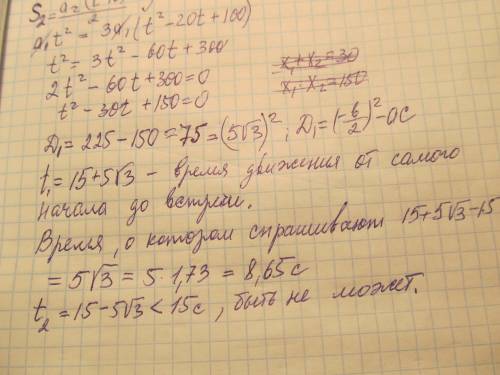 S₂ = a₂(t
a₁t² = 3a₁(t² - 20t + 100)
t² = 3t² - 60t + 300
2t² - 60t + 300 = 0
x₁ + x₂ = 30
t² - 30t + 150 = 0
x₁ · x₂ = 150
D₁ = 225 - 150 = 75 = (5√3)²; D₁ = (-б/2)² - ac
t₁ = 15 + 5√3 - время движения от самого
начала до встречи.
Время, о котором спрашивают 15 + 5√3 - 15
= 5√3 = 5 · 1,73 = 8,65 с
t₂ = 15 - 5√3 < 15 с, быть не может.